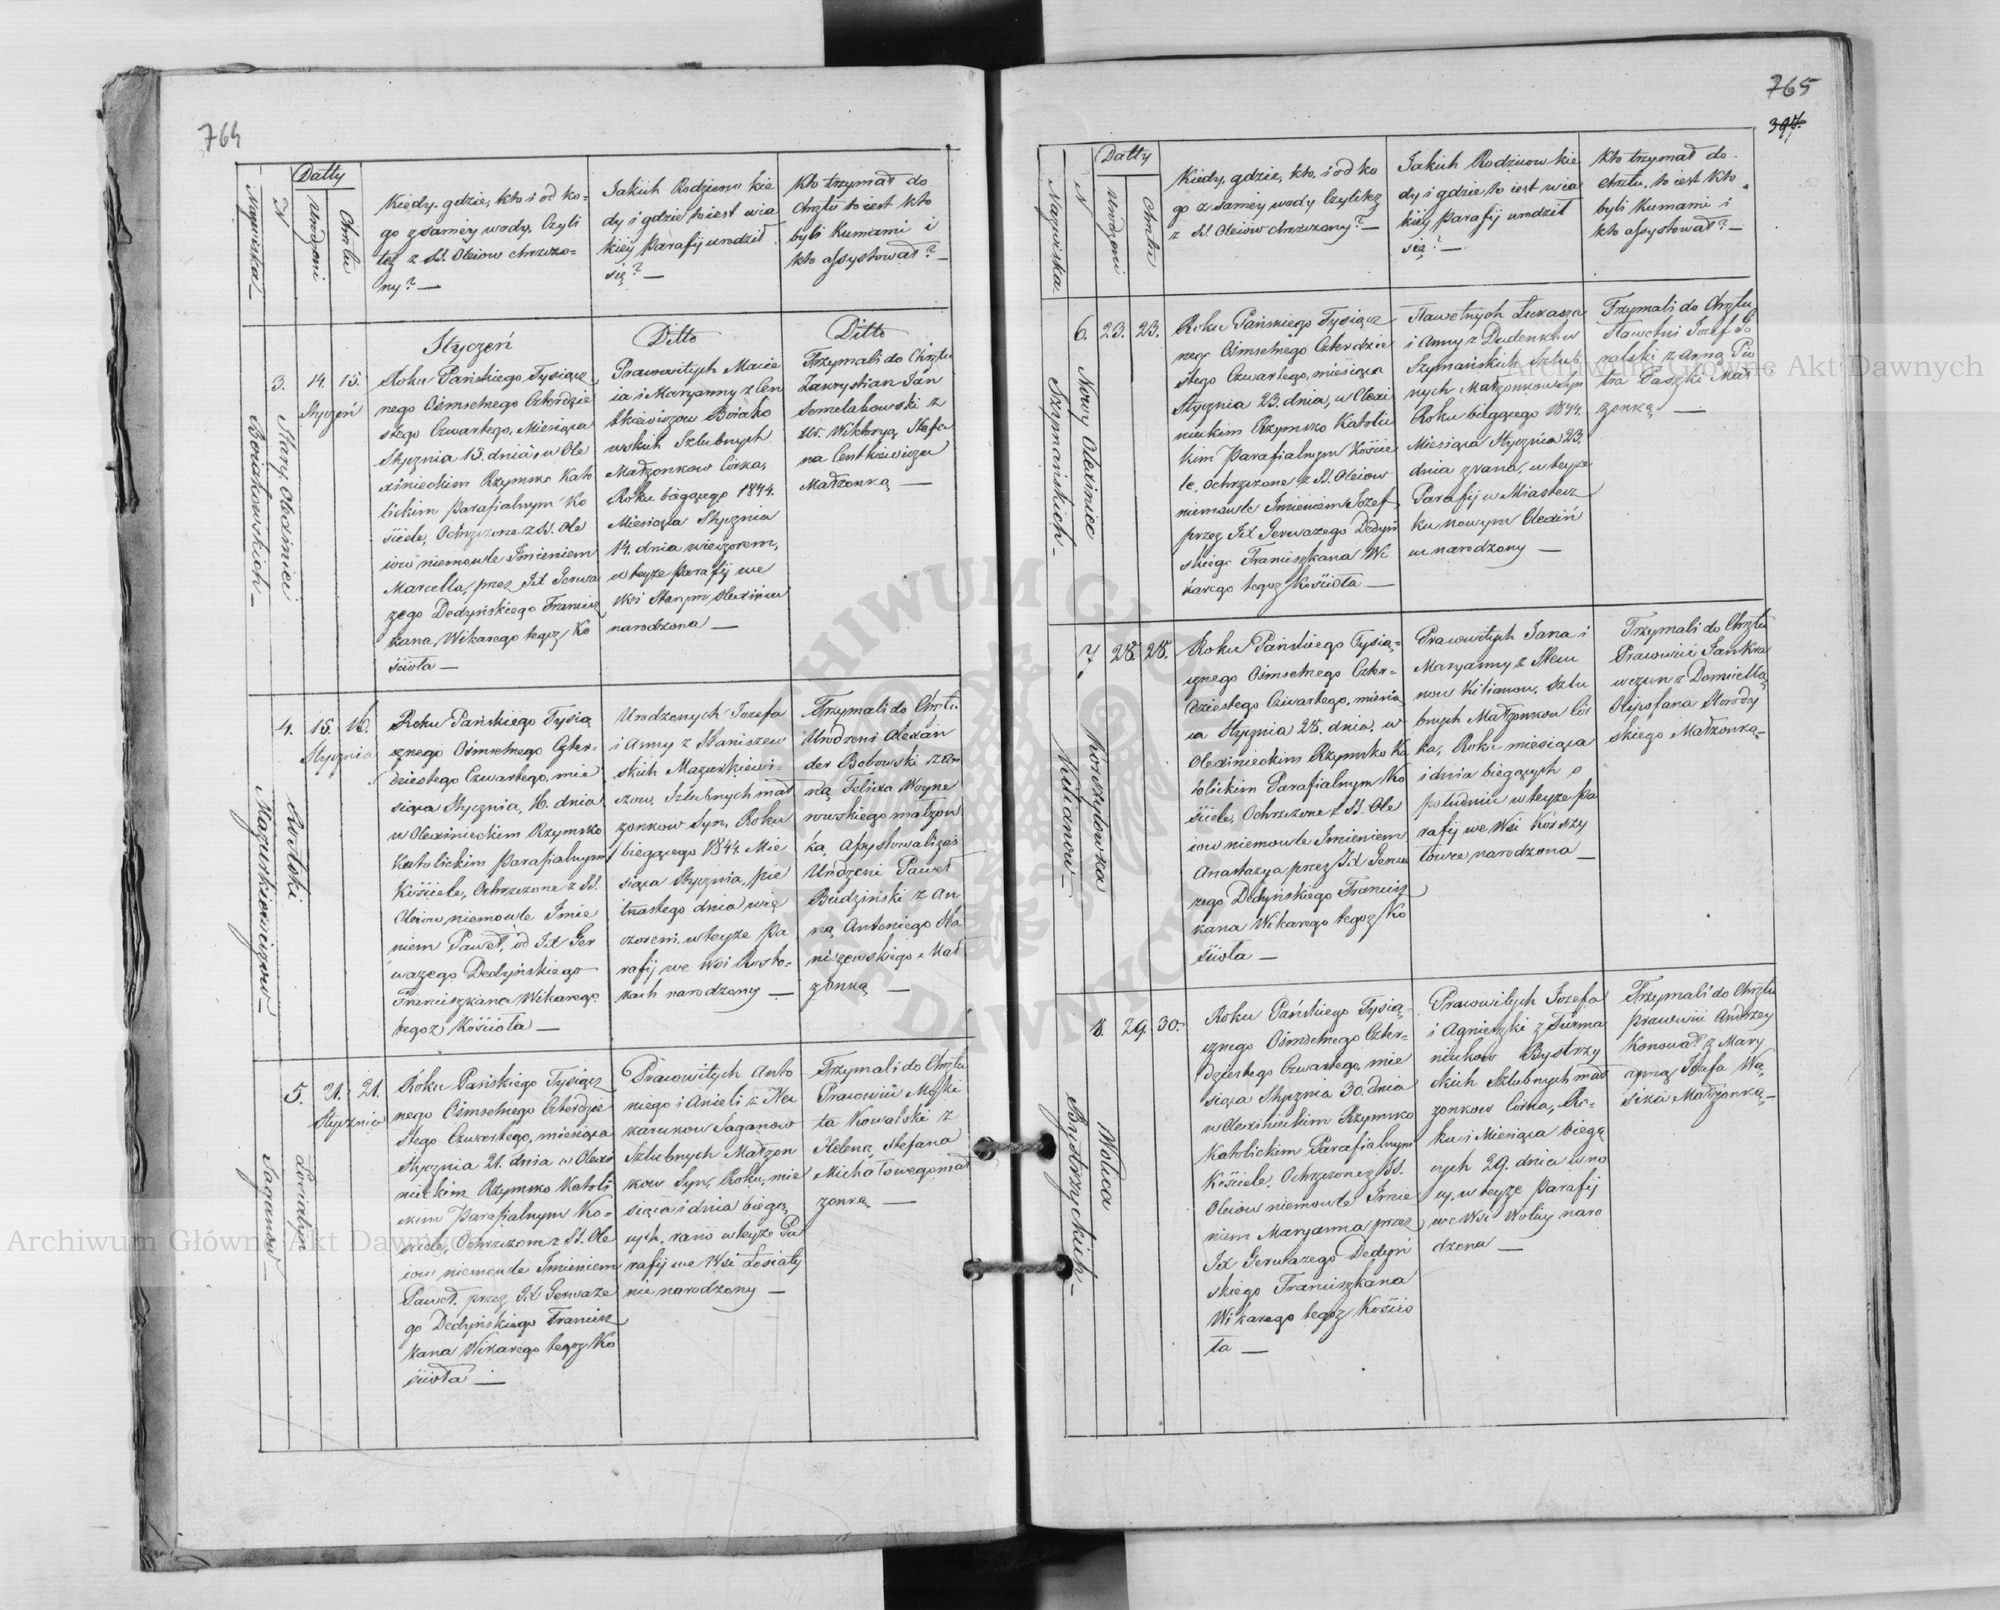 764
Datty
N
Nazwiska
Urodzeni
Chrztu
Kiedy, gdzie, kto i od ko=
go z samey wody, Czyli
też z SS. Oleiow chrzczo=
ny? —
Jakich Rodzicow kie
dy i gdzie to iest w ia
kiéy Parafij urodził
się? —
Kto trzymał do
Chrztu to iest kto
byli Kumami i
kto assystował? —
Styczeń
Ditto
Ditto
3.
14. 15.
Styczeń
Stary Olexiniec
Boiakowskich —
Roku Pańskiego Tysiącz
nego Ośmsetnego Czterdzie
stego Czwartego, Miesiąca
Stycznia 15. dnia, w Ole
xinieckim Rzymsko Kato
lickim Parafialnym Ko
ściele, Ochrzczone z SS. Ole
iow niemowle Imieniem
Marcella, przez JX Gerwa
zego Dedyńskiego Francisz
kana, Wikarego tegoż Ko
ścioła —
Pracowitych Macie
ia i Maryanny z Cen
tkiewiczow Boiako
wskich Szlubnych
Małżonkow Córka,
Roku biegącego 1844.
Miesiąca Stycznia
14. dnia wieczorem,
w teyże Parafij we
Wsi Starym Olexińcu
narodzona —
Trzymali do Chrztu
Zakrystian Jan
Semelakowski z
Ur. Wiktoryą Stefa
na Centkiewicza
Małżonką —
4.
15. 16.
Stycznia
Rostoki
Mazurkiewiczow —
Roku Pańskiego Tysią
cznego Ośmsetnego Czter=
dziestego Czwartego, mie
siąca Stycznia, 16. dnia
w Olexinieckim Rzymsko
Katolickim Parafialnym
Kościele, Ochrzczone z SS.
Oleiow, niemowle Imie
niem Paweł, od JX Ger
wazego Dedyńskiego
Franciszkana Wikarego
tegoż Kościoła —
Urodzonych Jozefa
i Anny z Staniszew
skich Mazurkiewi=
czow, Szlubnych mał
żonkow Syn, Roku
biegącego 1844. Mie
siąca Stycznia, pie
tnastego dnia wie
czorem, w teyże Pa
rafij we Wsi Rosto=
kach narodzony —
Trzymali do Chrztu
Urodzeni Olexan
der Bobowski z An
ną Felixa Woyna
rowskiego małżon
ką Assystowali zaś
Urodzeni Paweł
Budziński z An
ną Antoniego Sta
niszewskiego Mał
żonką —
5.
21. 21.
Stycznia
Łosiatyn
Saganow —
Roku Pańskiego Tysiącz
nego Ośmsetnego Czterdzie
stego Czwartego, miesiąca
Stycznia 21. dnia w Olexi
nieckim Rzymsko Katoli
ckim Parafialnym Ko=
ściele, Ochrzczone z SS. Ole
iow niemowle Imieniem
Paweł, przez JX Gerwaze
go Dedyńskiego Francisz
kana Wikarego tegoż Ko
ścioła —
Pracowitych Anto
niego i Anieli z
Saganow
Szlubnych Małżon
kow Syn, Roku, mie
siąca i dnia biegą
cych, rano w teyże Pa
rafij we Wsi Łosiaty
nie narodzony —
Trzymali do Chrztu
Pracowici
ta Kowalski z
Heleną Stefana
Michałowego mał
żonką —
765
397.
Datty
N
Nazwiska
Urodzeni
Chrztu
Kiedy, gdzie, kto, i od ko
go z samey wody Czyli też
z SS. Oleiow chrzczony? —
Jakich Rodzicow kie
dy i gdzie to iest w ia
kiéy Parafij urodził
się? —
Kto trzymał do
Chrztu, to iest kto
byli Kumami i
kto assystował? —
6. 23. 23.
Nowy Olexiniec
Szymańskich —
Roku Pańskiego Tysiącz
nego Ośmsetnego Czterdzie
stego Czwartego, miesiąca
Stycznia 23. dnia, w Olexi
nieckim Rzymsko Katolic
kim Parafialnym Koście
le, Ochrzczone z SS. Oleiow
niemowle Imieniem Jozef,
przez JX Gerwazego Dedyń
skiego Franciszkana Wi
karego tegoż Kościoła —
Sławetnych Łukasza
i Anny z Dudenkow
Szymańskich, Szlub
nych Małżonkow Syn,
Roku biegącego 1844.
Miesiąca Stycznia 23.
dnia z rana, w teyże
Parafij w Miastecz
ku nowym Olexiń
cu narodzony —
Trzymali do Chrztu
Sławetni Jozef Go
ralski z Anną Pio
tra Paszki Mał
żonką —
7. 28. 28.
Korszyłowka
Kilianow —
Roku Pańskiego Tysią=
cznego Ośmsetnego Czter=
dziestego Czwartego, miesią
ca Stycznia 28. dnia, w
Olexinieckim Rzymsko Ka
tolickim Parafialnym Ko
ściele, Ochrzczone z SS. Ole
iow niemowle Imieniem
Anastazya przez JX Gerwa
zego Dedyńskiego Francisz
kana Wikarego tegoż Ko
ścioła —
Pracowitych Jana i
Maryanny z
Kilianow, Szlu
bnych Małżonkow Cór
ka, Roku miesiąca
i dnia biegących o
południu w teyże Pa
rafij we Wsi Korszy
łowce narodzona —
Trzymali do Chrztu
Pracowici Jan Kra
wczun z Domicellą
Małżonką —
8. 29. 30.
Wolica
Bystrzyckich —
Roku Pańskiego Tysią=
cznego Ośmsetnego Czter=
dziestego Czwartego, mie
siąca Stycznia 30. dnia
w Olexinieckim Rzymsko
Katolickim Parafialnym
Kościele, Ochrzczone z SS.
Oleiow niemowle Imie
niem Maryanna przez
JX Gerwazego Dedyń
skiego Franciszkana
Wikarego tegoż Kościo
ła —
Pracowitych Jozefa
i Agnieszki z Furma
niukow Bystrzy
ckich Szlubnych mał
żonkow Córka, Ro=
ku i Miesiąca biegą
cych 29. dnia w no
cy, w teyże Parafij
we Wsi Wolicy naro
dzona —
Trzymali do Chrztu
Pracowici Andrzey
Konował z Mary
anną Jozefa Wą
sika Małżonką —
Archiwum Główne Akt Dawnych
Archiwum Główne Akt Dawnych